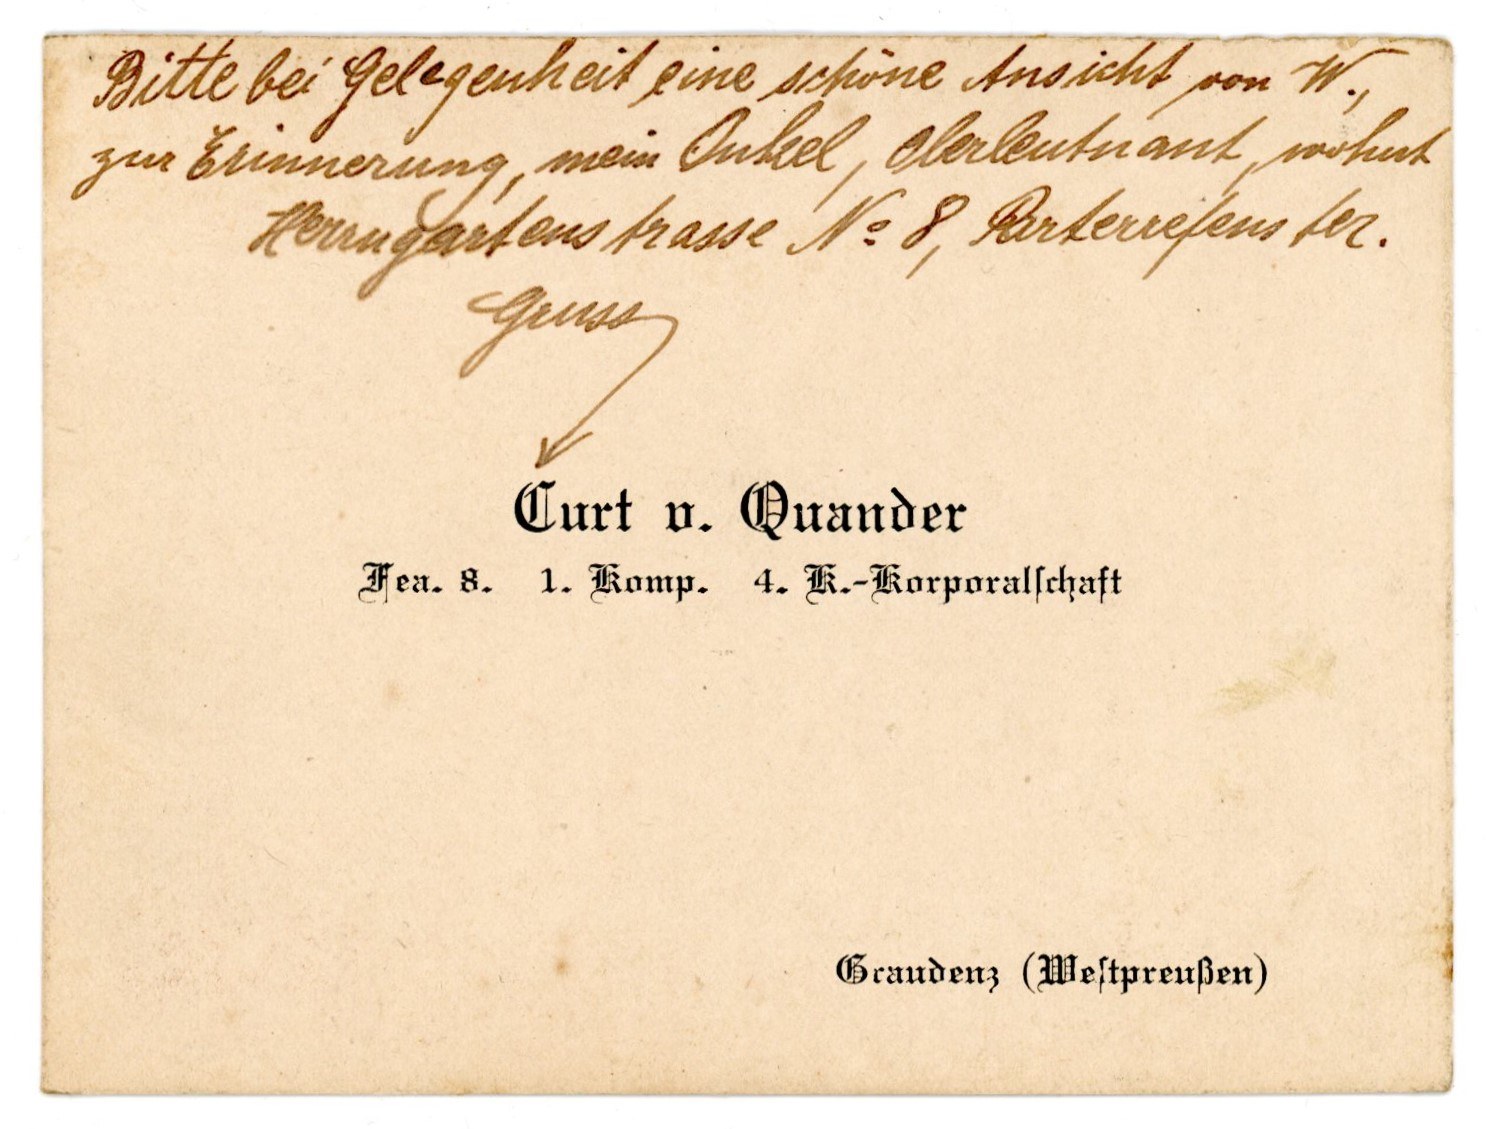 Bitte bei Gelegenheit eine schöne Ansicht von W.,
zur Erinnerung, mein Onkel, Oberleutnant, wohnt
Herrngartenstrasse No 8, Parterrefenster.
Gruss
Curt v. Quander
Fea. 8. 1. Komp. 4. K.-Korporalſchaft
Graudenz (Weſtpreußen)